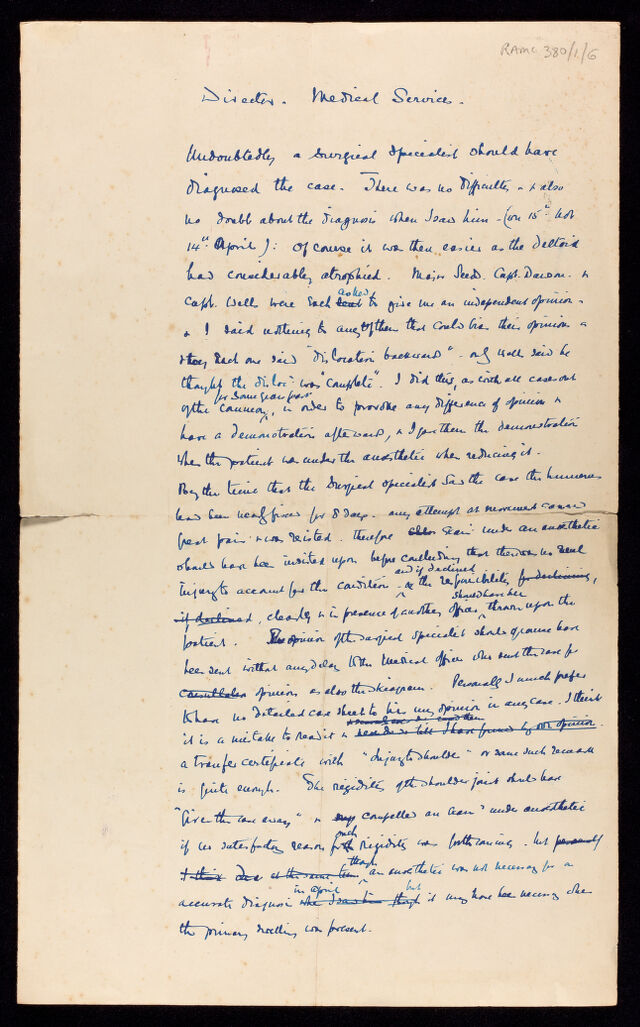 RAMC 380/1/6
Director. Medical Services.
Undoubtedly a Surgical Specialist should have
diagnosed the case. There was no difficulty - & also
no doubt about the diagnosis when I saw him - (on 15th not
14th April): Of course it was then easier as the deltoid
had considerably atrophied. Major Seed. Capt. Dawson. &
Capt. Wells were each asked to give me an independent opinion -
& I said nothing to any of them that could bias their opinion -
each one said "dislocation backwards" - only Wells said he
thought the disloc was "complete". I did this, as with all cases out
of the common, for some years past in order to provoke any difference of opinion &
have a demonstration afterwards, & I gave them the demonstration
when the patient was under the anaesthetic when reducing it.
By the time that the Surgical Specialist saw the case the humerus
had been nearly fixed for 8 days. any attempt at movement caused
great pain & was resisted. therefore exam under an anaesthetic
should have been insisted upon before concluding that there was no real
injury to account for the condition - and if declined the responsibility for declining,
if declined, clearly & in presence of another officer should have been thrown upon the
patient. The opinion of the surgical specialist should of course have
been sent without any delay to the Medical Officer who sent the case for
consultation opinion as also the skiagram. Personally I much prefer
to have no detailed case sheet to bias my opinion in any case. I think
it is a mistake to read it until I have formed my own opinion.
a transfer certificate with "Injury to shoulder" or some such remark
is quite enough. The rigidity of the shoulder joint should have
"Given the case away" & compelled an exam under anaesthetic
if no satisfactory reason for such rigidity was forthcoming. but personally
I think at the same time though an anaesthetic was not necessary for a
accurate diagnosis in April when I saw him though but it may have been necessary when
the primary swelling was present.